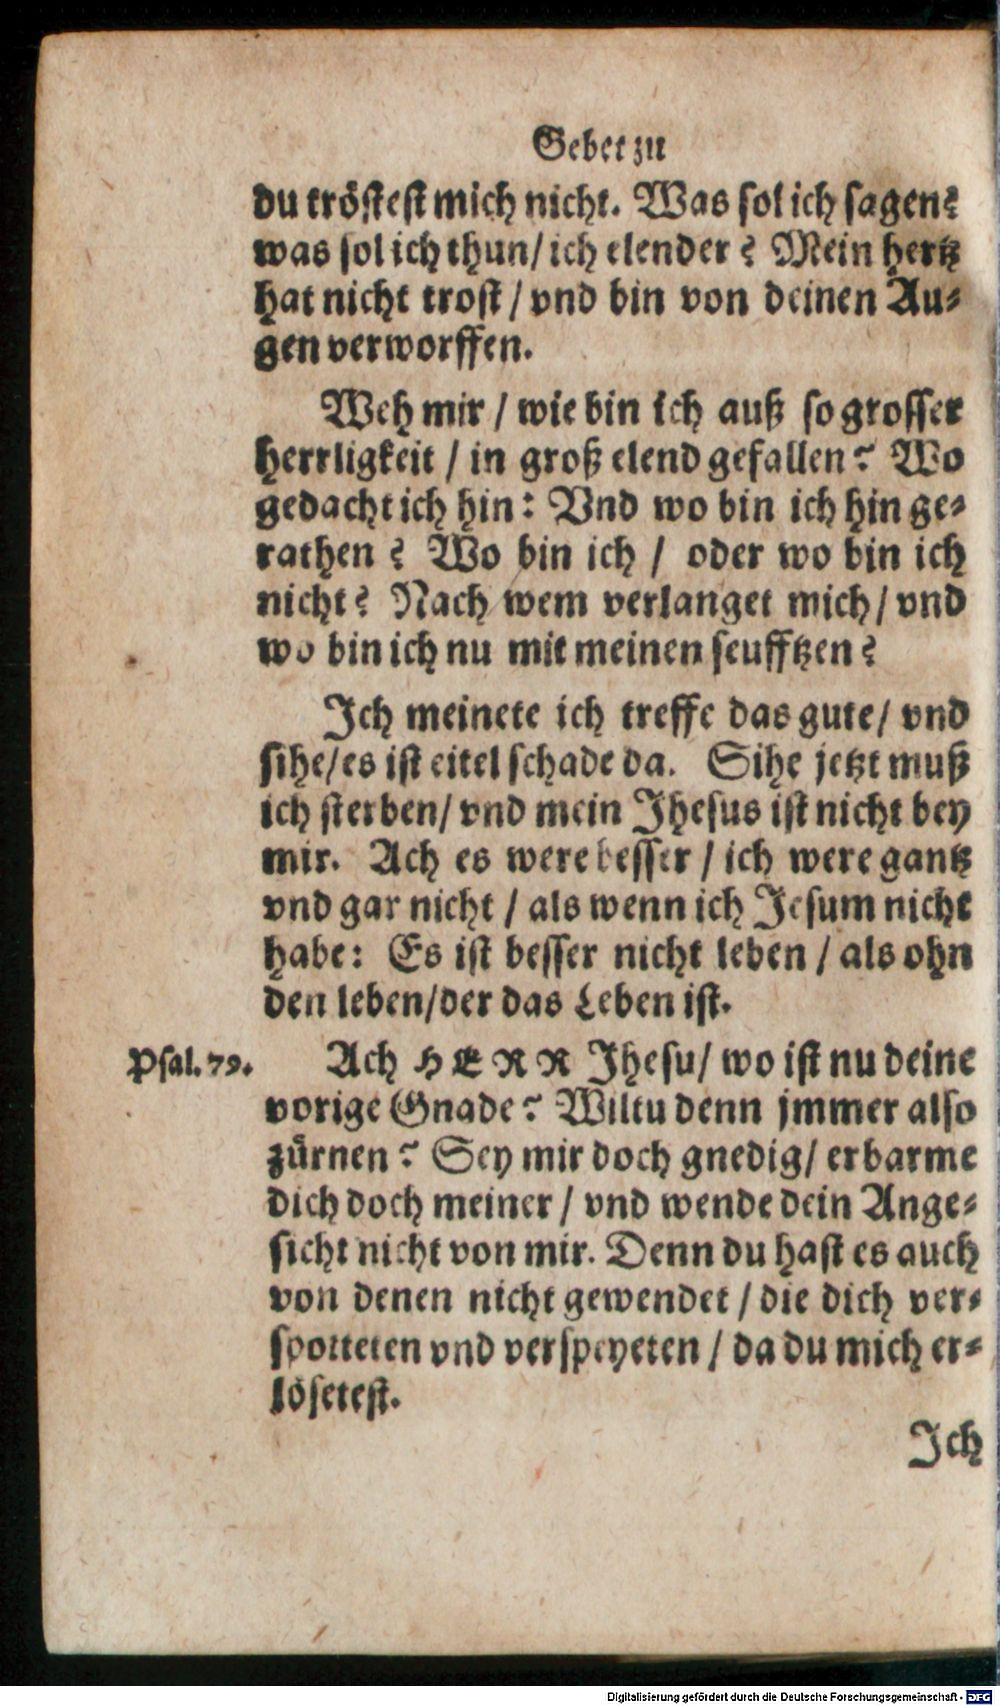 Gebet zu
du tröstest mich nicht. Was sol ich sagen?
was sol ich thun/ ich elender? Mein hertz
hat nicht trost / vnd bin von deinen Au-
gen verworffen.
Weh mir / wie bin ich auß so grosser
herrligkeit / in groß elend gefallen? Wo
gedacht ich hin: Vnd wo bin ich hin ge-
rathen? Wo bin ich / oder wo bin ich
nicht? Nach wem verlanget mich/ vnd
wo bin ich nu mit meinen seufftzen?
Ich meinete ich treffe das gute/ vnd
sihe/es ist eitel schade da. Sihe jetzt muß
ich sterben/ vnd mein Jhesus ist nicht bey
mir. Ach es were besser / ich were gantz
vnd gar nicht / als wenn ich Jesum nicht
habe: Es ist besser nicht leben / als ohn
den leben/der das Leben ist.
Psal. 79. Ach HERR Jhesu/ wo ist nu deine
vorige Gnade? Wiltu denn jmmer also
zürnen? Sey mir doch gnedig/ erbarme
dich doch meiner / vnd wende dein Ange-
sicht nicht von mir. Denn du hast es auch
von denen nicht gewendet / die dich ver-
spotteten vnd verspeyeten / da du mich er-
lösetest.
Ich
Digitalisierung gefördert durch die Deutsche Forschungsgemeinschaft - DFG